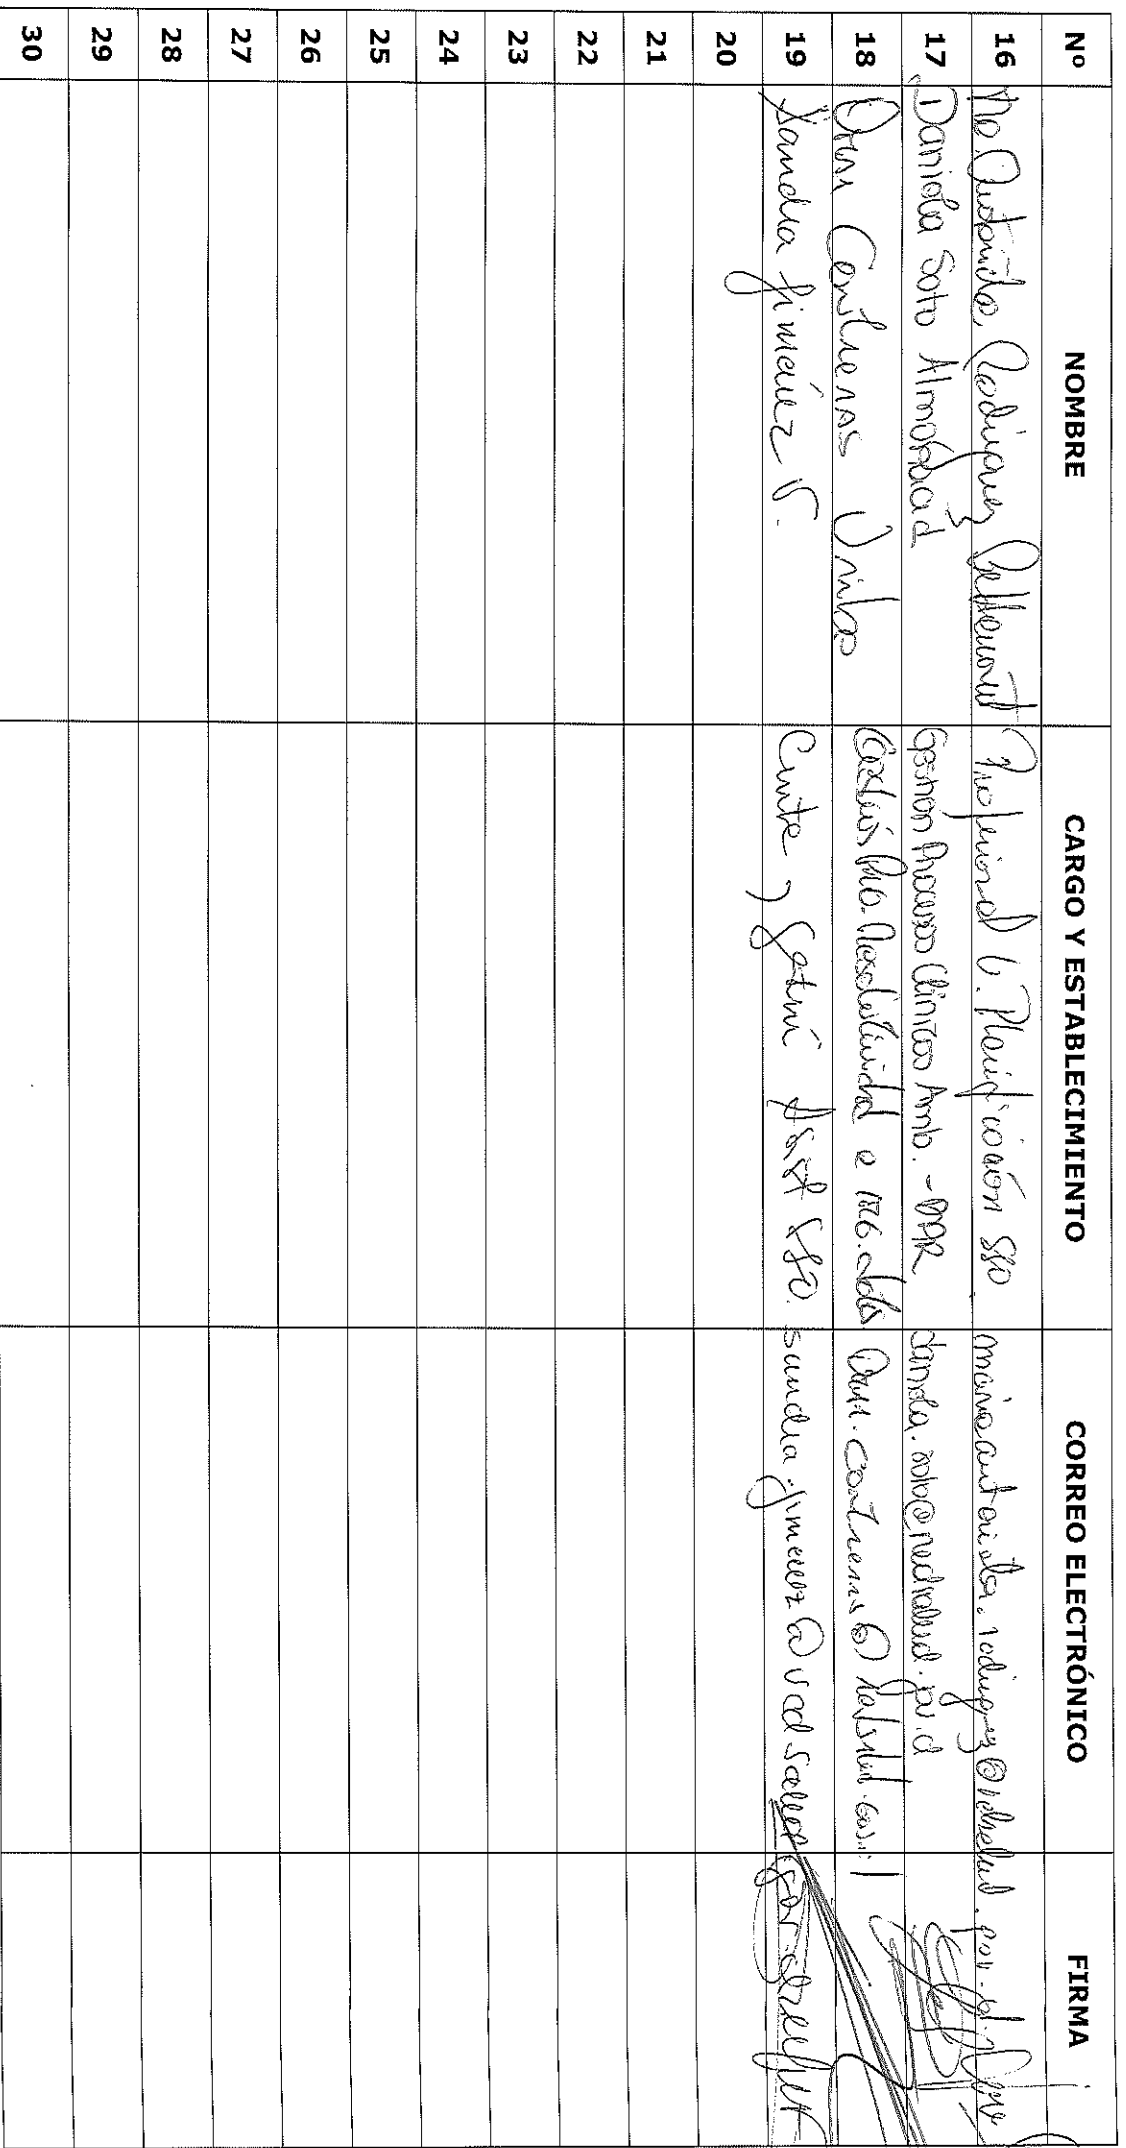 Nº NOMBRE CARGO Y ESTABLECIMIENTO CORREO ELECTRÓNICO FIRMA
16 Mª Antonieta Rodríguez Bettancourt Profesional U. Planificación SSO mariaantonieta.rodriguez@redsalud.gov.cl
17 Daniela Soto Almonacid Gestión Procesos Clínicos Amb. - DAR daniela.soto@redsalud.gov.cl
18 Contreras Uribe e contreras@redsalud.gov.cl
19 Sandra Jiménez V. y Gestión Asist SSO. sandra.jimenez@redsalud.gov.cl
20
21
22
23
24
25
26
27
28
29
30